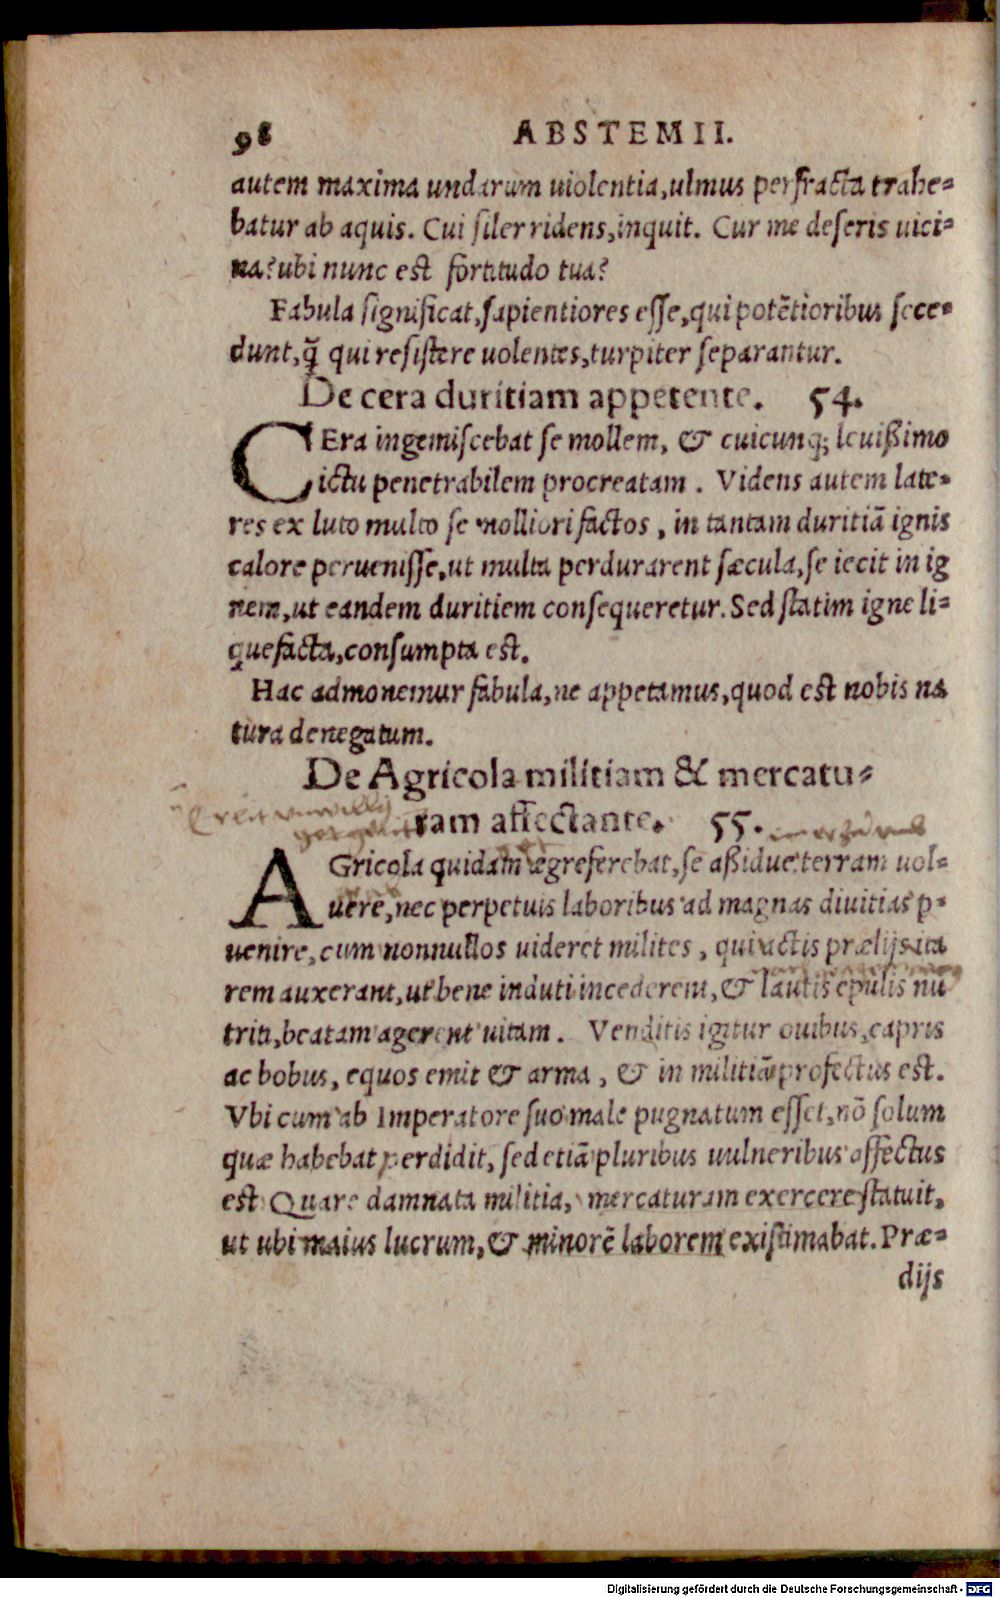 98 ABSTEMII.
autem maxima undarum uiolentia,ulmus perfracta trahe=
batur ab aquis. Cui siler ridens,inquit. Cur me deseris uici=
na?ubi nunc est fortitudo tua?
Fabula significat,sapientiores esse,qui potẽtioribus sece=
dunt,q̃ qui resistere uolentes,turpiter separantur.
De cera duritiam appetente. 54.
CEra ingemiscebat se mollem, & cuicunq; leuißimo
ictu penetrabilem procreatam. Videns autem late=
res ex luto multo se molliori factos, in tantam duritiã ignis
calore peruenisse,ut multa perdurarent sæcula,se iecit in ig
nem,ut eandem duritiem consequeretur. Sed statim igne li=
quefacta,consumpta est.
Hac admonemur fabula,ne appetamus,quod est nobis na
tura denegatum.
De Agricola militiam & mercatu=
ram affectante. 55.
AGricola quidam ægre ferebat,se aßidue terram uol=
uere,nec perpetuis laboribus ad magnas diuitias p=
uenire, cum nonnullos uideret milites, qui actis prælijs ita
rem auxerant,ut bene induti incederent, & lautis epulis nu
triti,beatam agerent uitam. Venditis igitur ouibus,capris
ac bobus, equos emit & arma, & in militiã profectus est.
Vbi cum ab Imperatore suo male pugnatum esset,nõ solum
quæ habebat perdidit, sed etiã pluribus uulneribus affectus
est Quare damnata militia, mercaturam exercere statuit,
ut ubi maius lucrum,& minorẽ laborem existimabat. Præ=
dijs
Digitalisierung gefördert durch die Deutsche Forschungsgemeinschaft - DFG